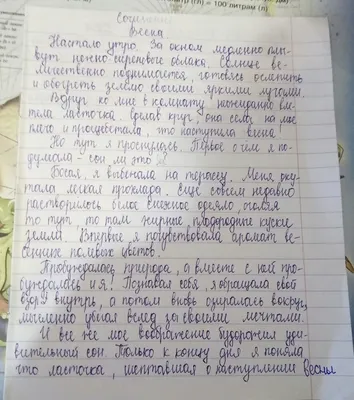 100 литрам (л)
Сочинение
Весна
Настало утро. За окном медленно плы-
вут нежно-сиреневые облака. Солнце ве-
личественно поднимается, готовясь осветить
и обогреть землю своими яркими лучами.
Вдруг ко мне в комнату неожиданно вле-
тела ласточка. Сделав круг, она села на мое
плечо и прощебетала, что наступила весна!
Но тут я проснулась. Первое о чём я по-
думала - сон ли это
Босая, я выбежала на террасу. Меня оку-
тала легкая прохлада. Еще совсем недавно
растворилось белое снежное одеяло, оголяя
то тут, то там жирные, плодородные куски
земли. Впервые я почувствовала аромат ве-
сенних полевых цветов.
Пробуждалась природа, а вместе с ней про-
буждалась и я! Познавая себя, я обращала свой
взор внутрь, а потом вновь озиралась вокруг,
мысленно увлекая вслед за своими мечтами.
И все же мое воображение будоражил уди-
вительный сон. Только к концу дня я поняла
что ласточка, шептавшая о наступлении весны